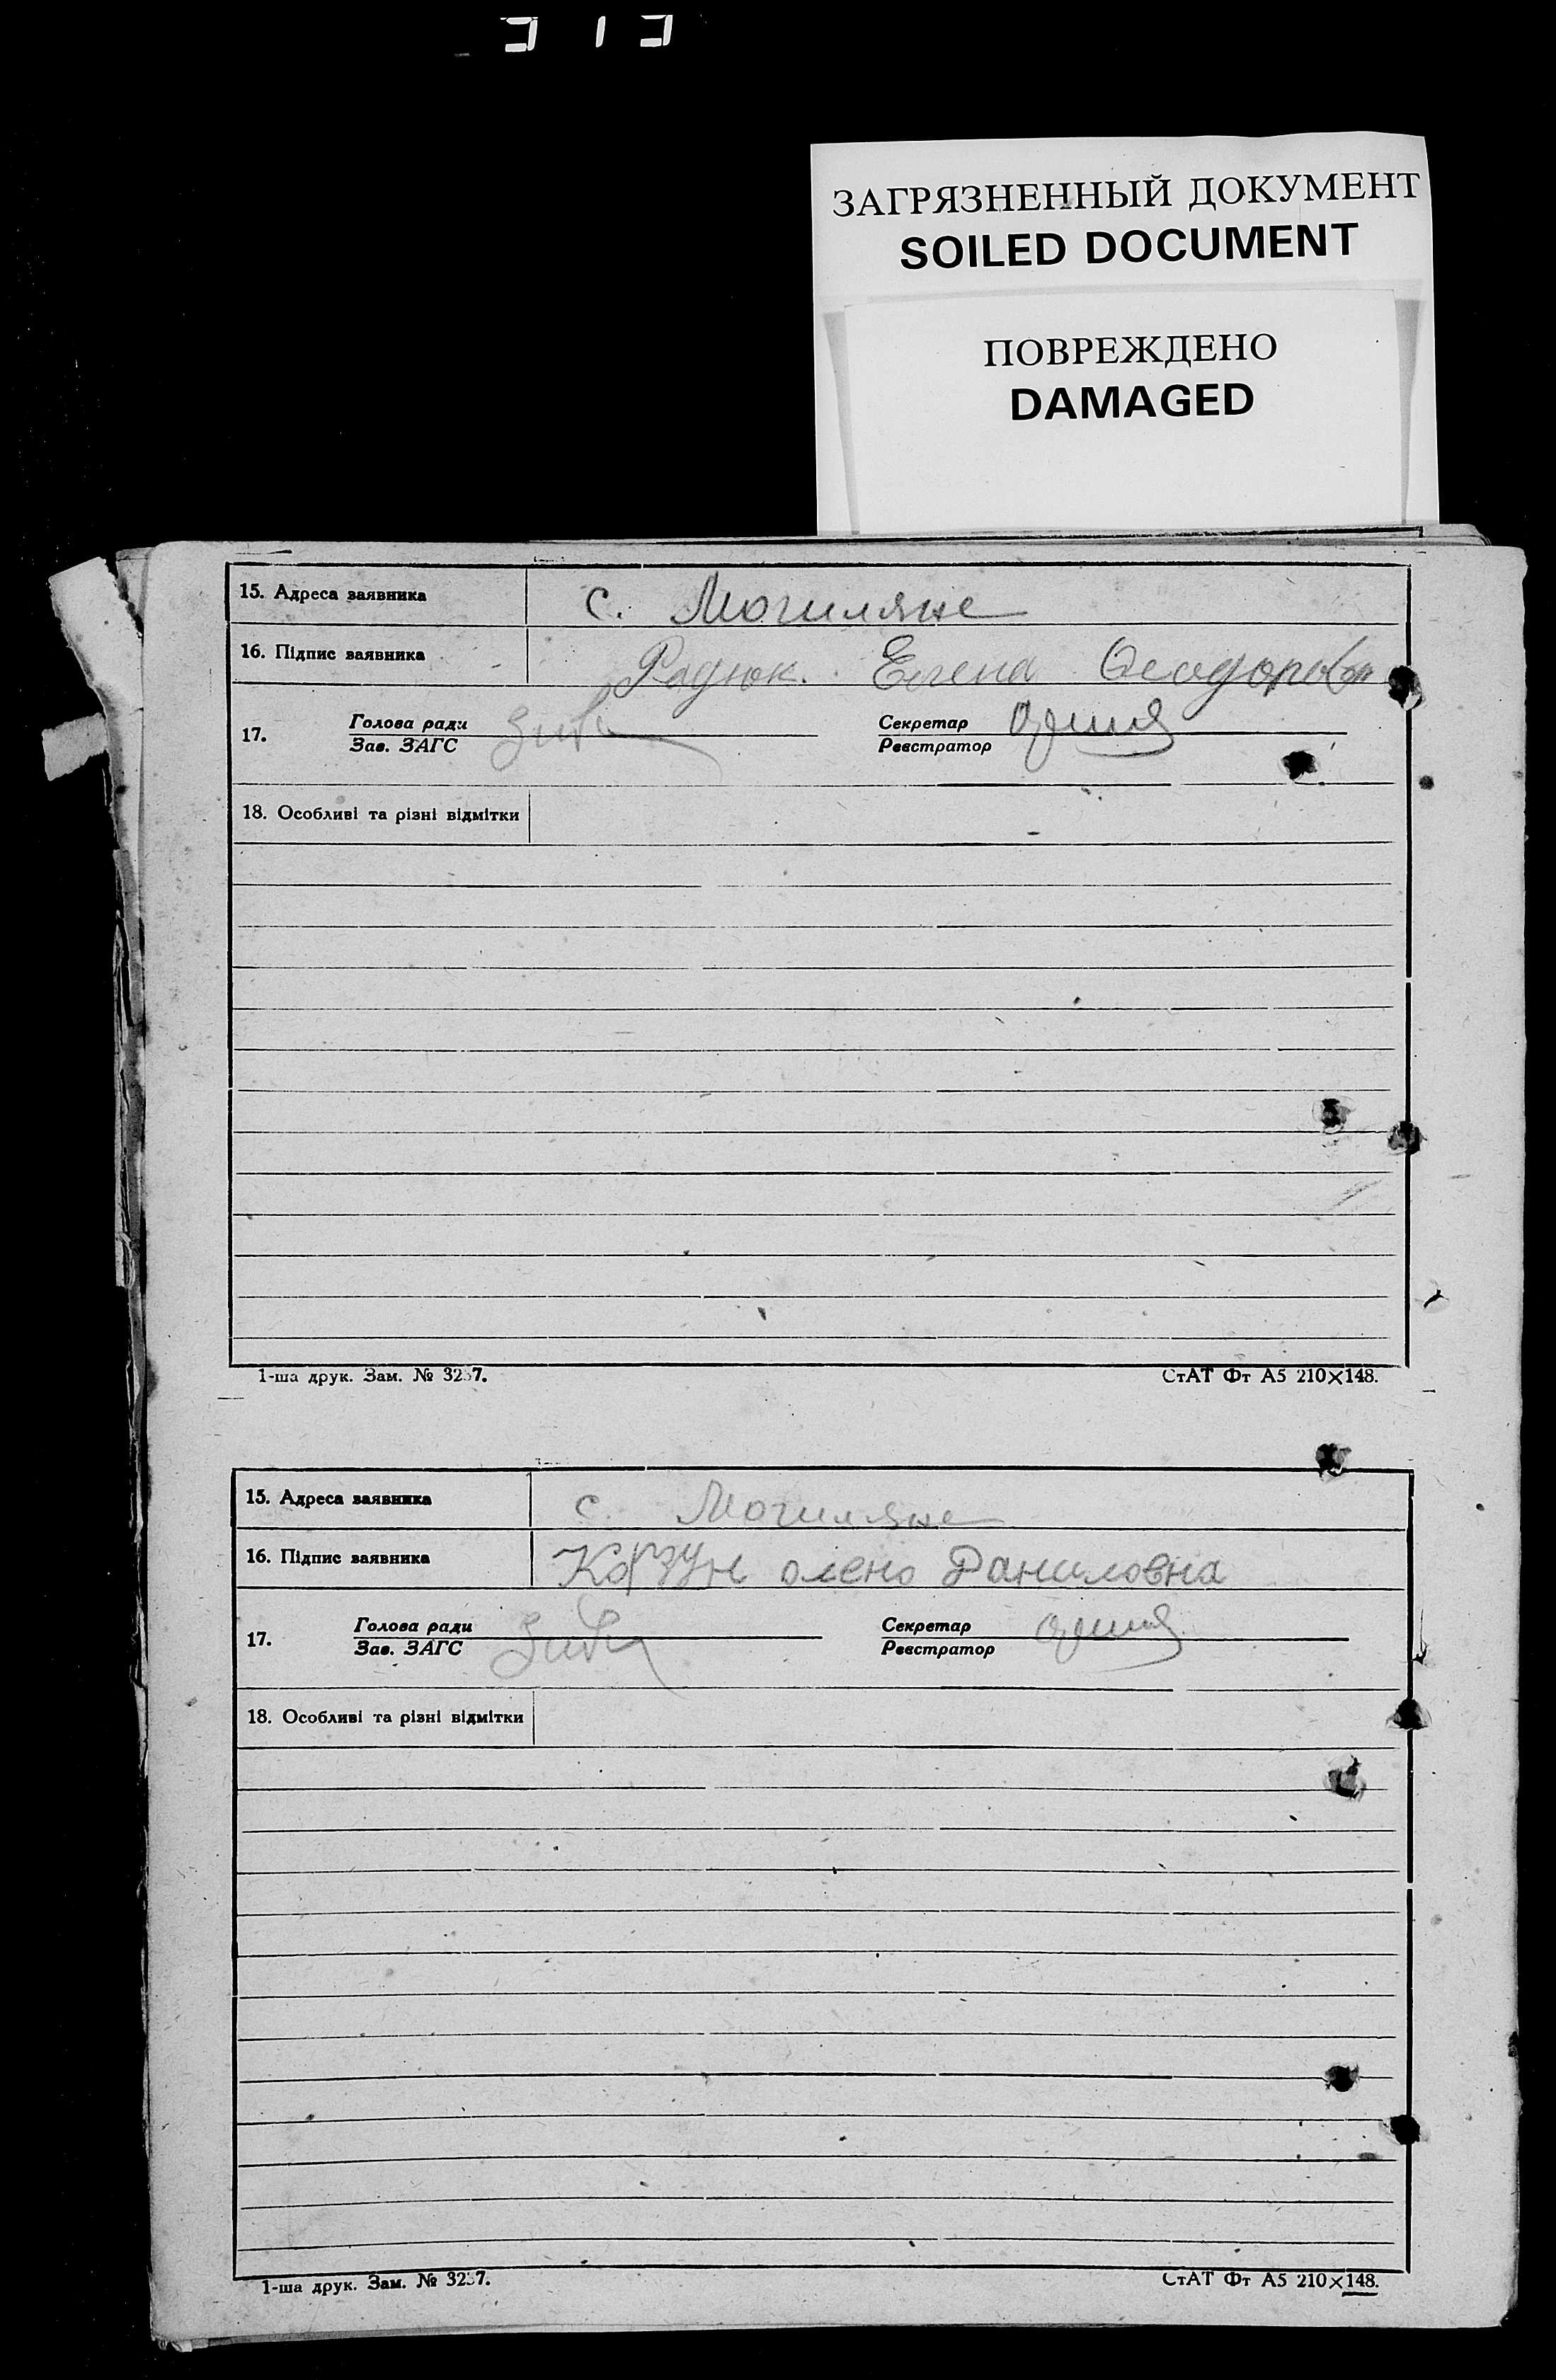 ЗАГРЯЗНЕННЫЙ ДОКУМЕНТ
SOILED DOCUMENT
ПОВРЕЖДЕНО
DAMAGED
15. Адреса заявника с. Могиляне
16. Підпис заявника Радюк. Елена
17. Голова ради Секретар
Зав. ЗАГС Реєстратор
18. Особливі та різні відмітки
1-ша друк. Зам. № 3237. СтАТ Фт А5 210×148.
15. Адреса заявника с. Могиляне
16. Підпис заявника Корзун олено Даниловна
17. Голова ради Секретар
Зав. ЗАГС Реєстратор
18. Особливі та різні відмітки
1-ша друк. Зам. № 3237. СтАТ Фт А5 210×148.